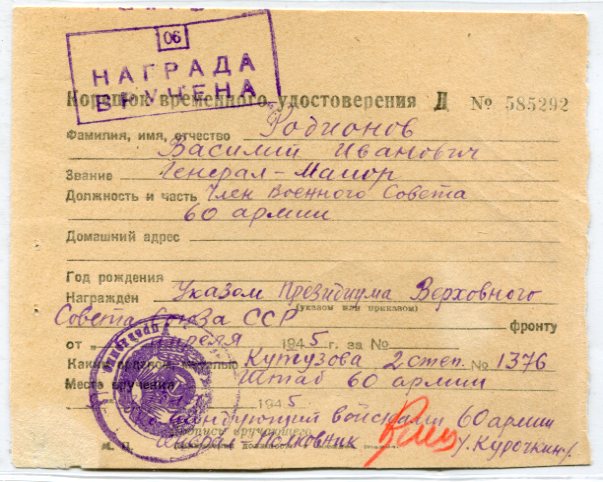 06
НАГРАДА
ВРУЧЕНА
Корешок временного удостоверения Д № 585292
Фамилия, имя, отчество Родионов
Василий Иванович
Звание Генерал-Майор
Должность и часть Член Военного Совета
60 армии
Домашний адрес
Год рождения
Награжден Указом Президиума Верховного
(указом или приказом)
Совета Союза ССР фронту
от апреля 1945 г. за №
Кутузова 2 степ. № 1376
Место вручения Штаб 60 армии
1945
войсками 60 армии
Генерал-Полковник /Курочкин/